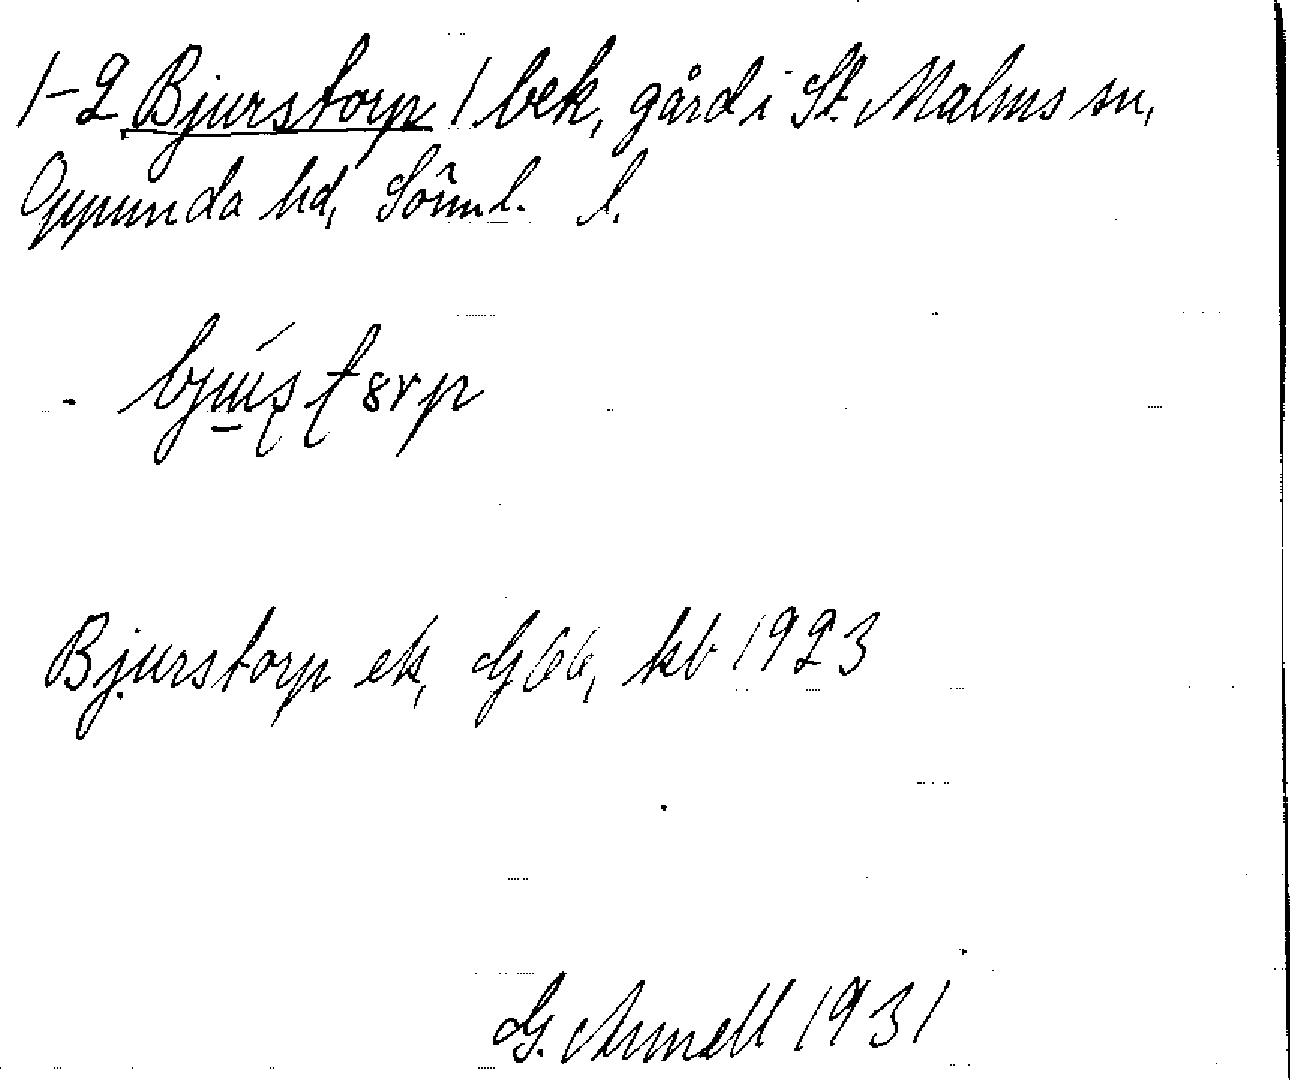 1-2 Bjurstorp 1 bek, gård i St. Malms sn,
Oppunda hd, Sörml. l.
Bjurstorp ek, Gbb, kb 1923
G. Armell 1931